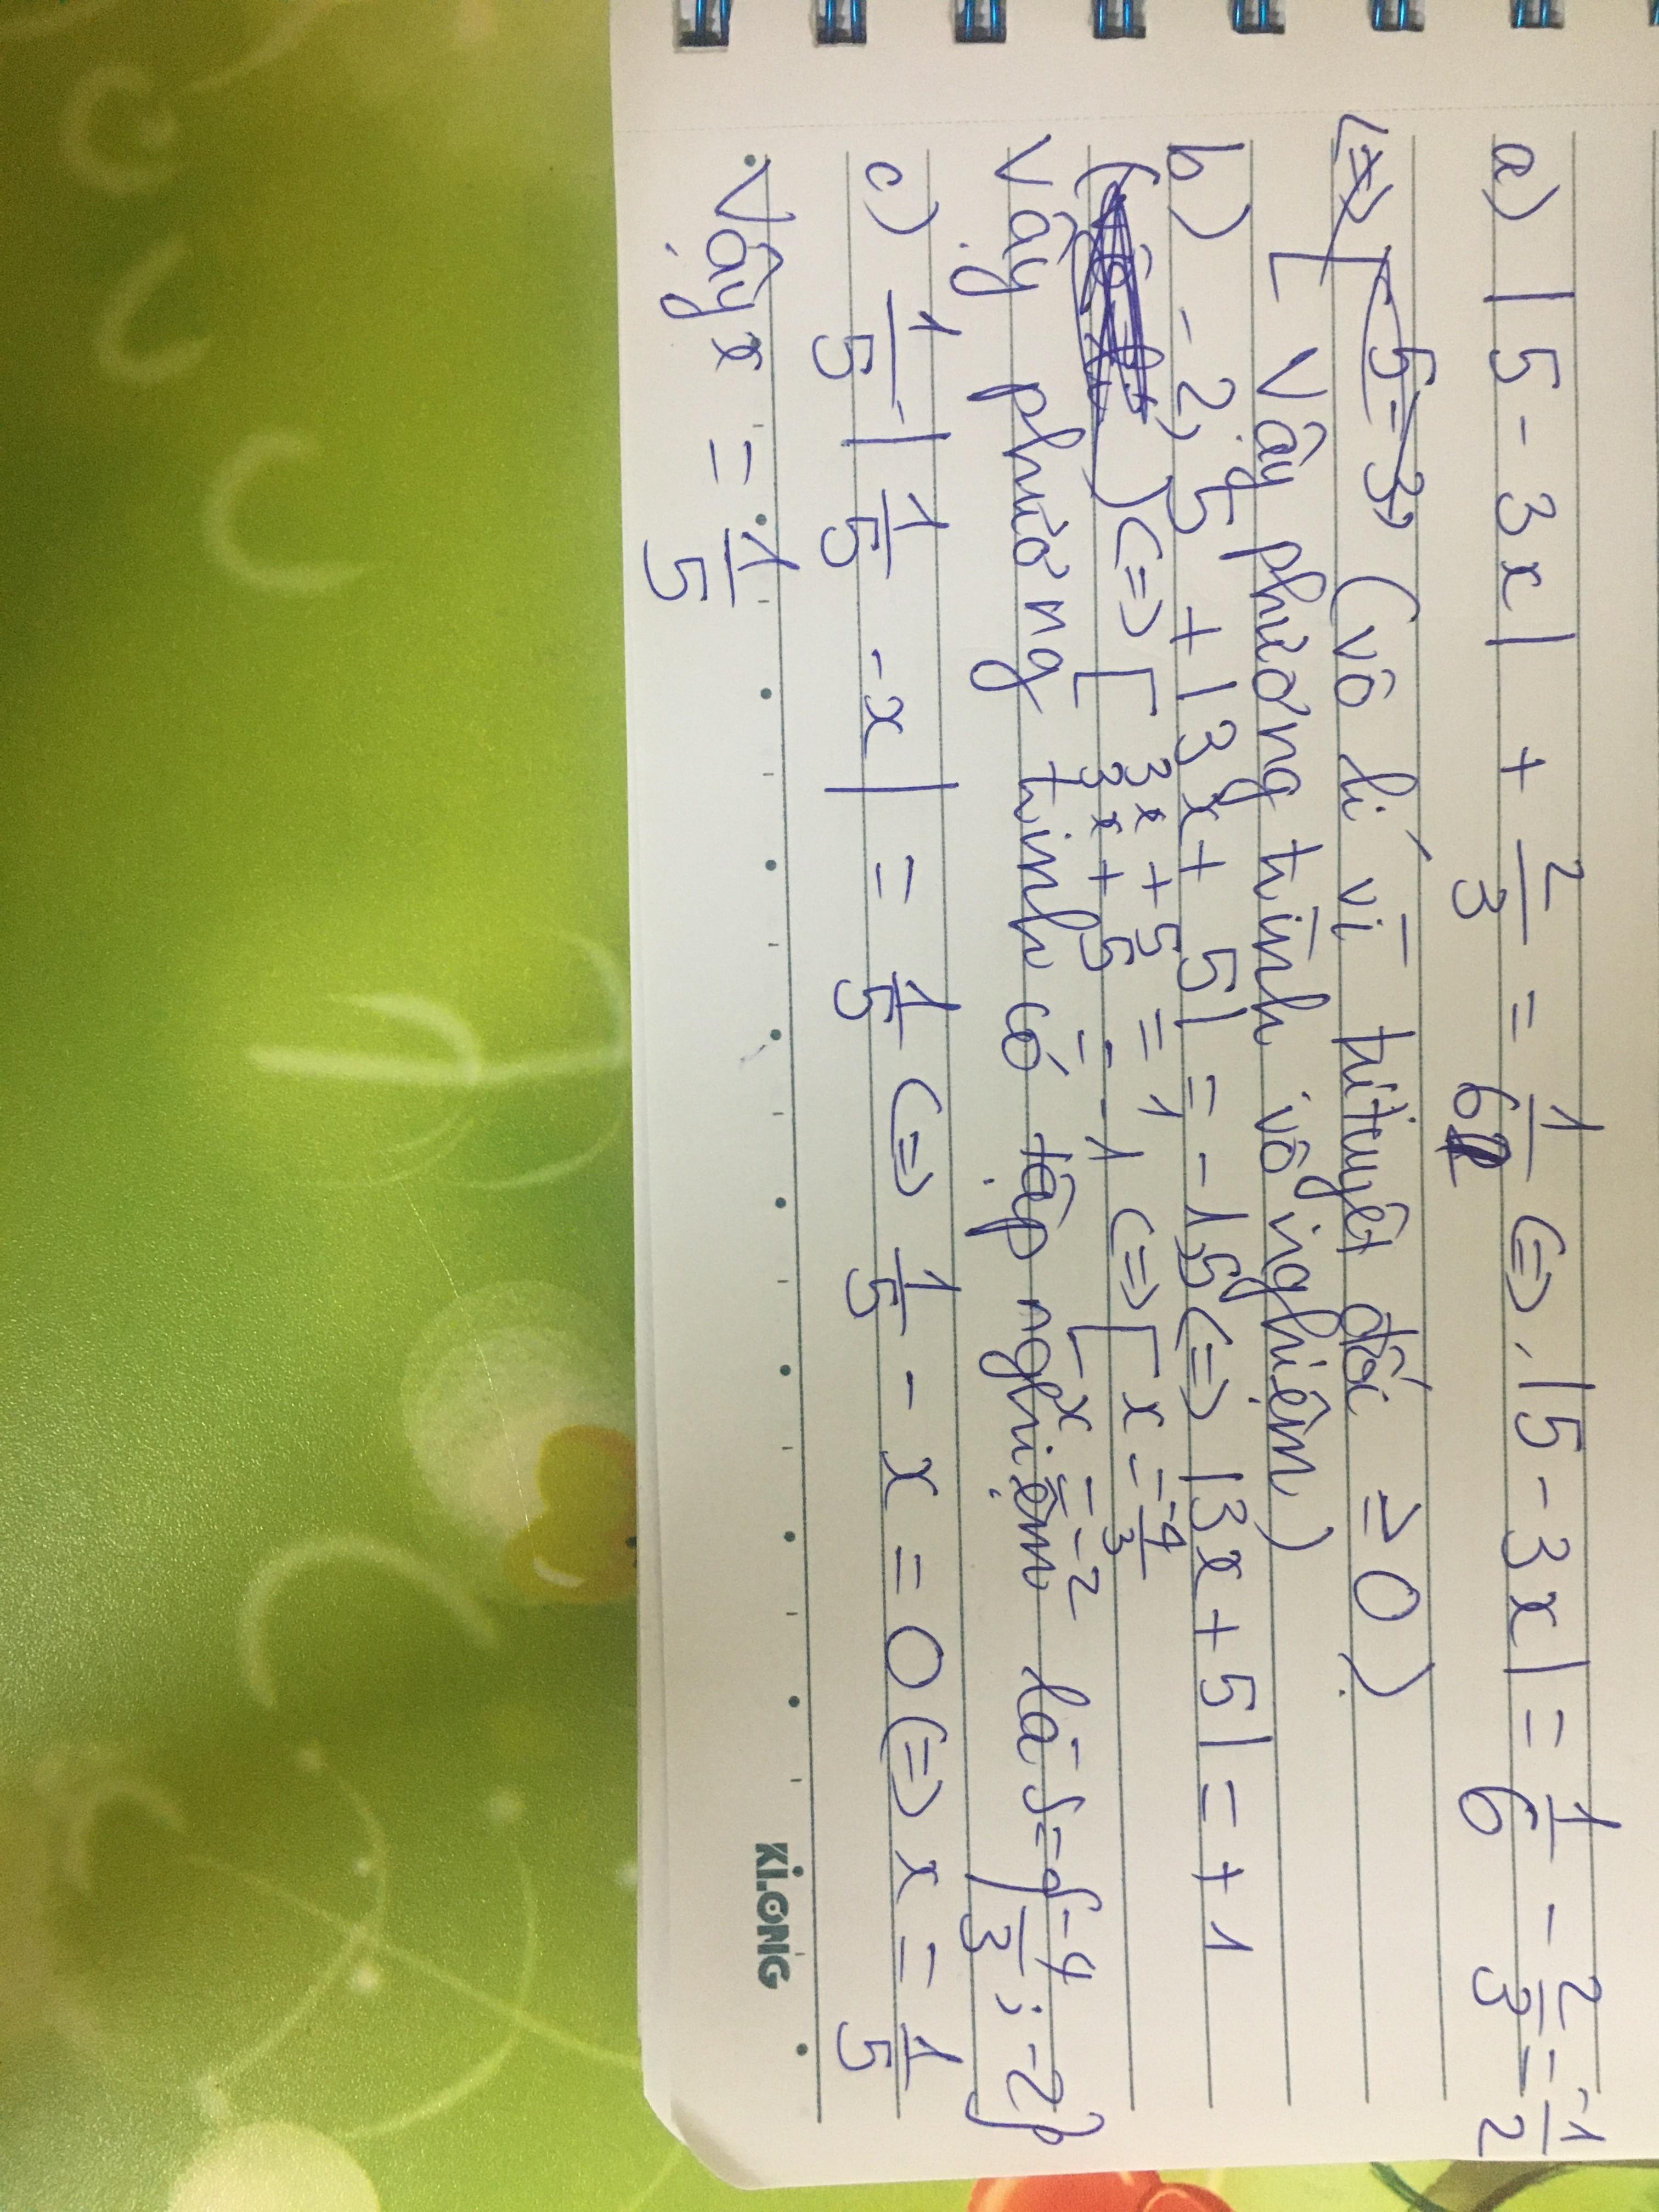 a) |5 - 3x| + 2/3 = 1/6 <=> |5 - 3x| = 1/6 - 2/3 = -1/2
<=> [ 5 - 3x (vô lí vì trị tuyệt đối ≥ 0)
Vậy phương trình vô nghiệm)
b) -2,5 + |3x + 5| = -1,5 <=> |3x + 5| = +1
<=> [ 3x + 5 = 1 <=> [ x = -4/3
3x + 5 = -1 x = -2
Vậy phương trình có tập nghiệm là S = {-4/3 ; -2}
c) 1/5 - |1/5 - x| = 1/5 <=> 1/5 - x = 0 <=> x = 1/5
Vậy x = 1/5
KLONG